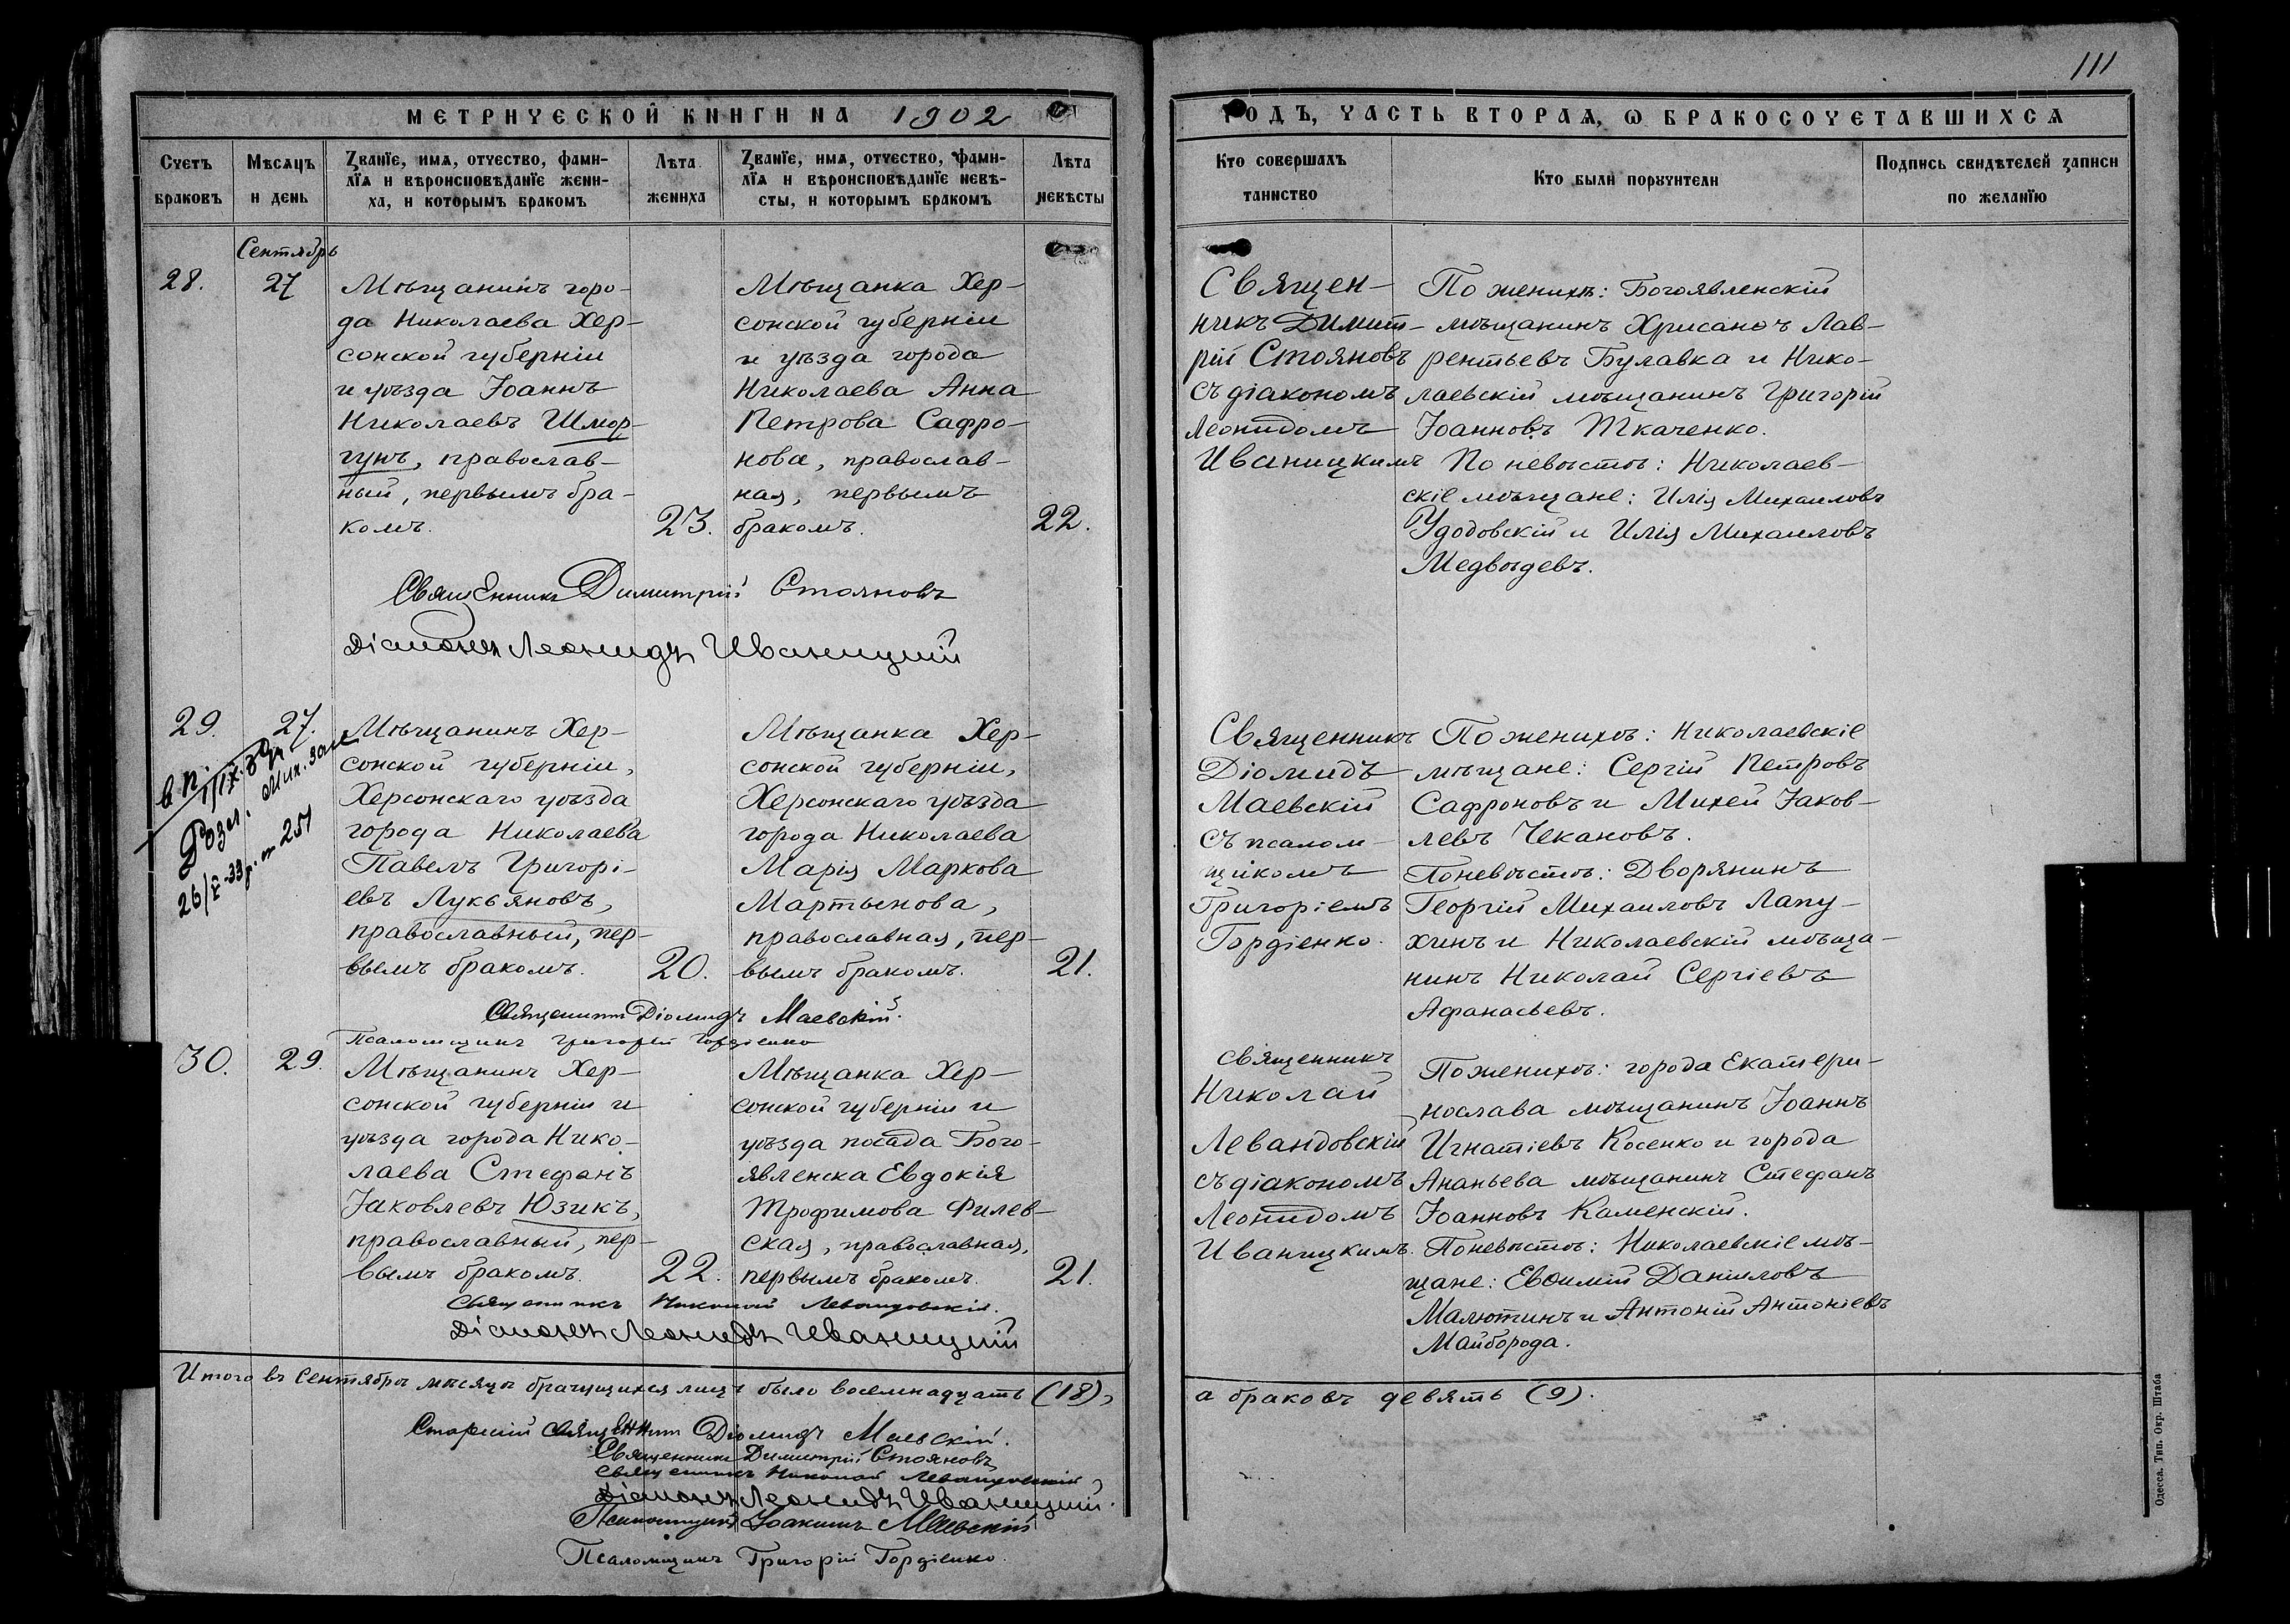 111
МЕТРИЧЕСКОЙ КНИГИ НА 1902
ГОДЪ, ЧАСТЬ ВТОРАѦ, Ѡ БРАКОСОЧЕТАВШИХСѦ
Счетъ
браковъ
Мѣсѧцъ
и день
Званїе, имѧ, отчество, фами-
лїѧ и вѣроисповѣданїе жени-
ха, и которымъ бракомъ
Лѣта
жениха
Званїе, имѧ, отчество, фами-
лїѧ и вѣроисповѣданїе невѣ-
сты, и которымъ бракомъ
Лѣта
невѣсты
Кто совершалъ
таинство
Кто были поручители
Подпись свидѣтелей записи
по желанїю
Сентябрь
28.
27
Мѣщанинъ горо-
да Николаева Хер-
сонской губерніи
и уѣзда Іоаннъ
Николаевъ Шмор-
гунъ, православ-
ный, первымъ бра-
комъ.
23.
Мѣщанка Хер-
сонской губерніи
и уѣзда города
Николаева Анна
Петрова Сафро-
нова, православ-
ная, первымъ
бракомъ.
22.
Священ-
никъ Димит-
рій Стояновъ
съ діакономъ
Леонидомъ
Иваницкимъ
По женихѣ: Богоявленскій
мѣщанинъ Хрисанѳъ Лав-
рентьевъ Булавка и Нико-
лаевскій мѣщанинъ Григорій
Іоанновъ Ткаченко.
По невѣстѣ: Николаев-
скіе мѣщане: Илія Михаиловъ
Удодовскій и Илія Михаиловъ
Медвѣдевъ.
Священникъ Димитрій Стояновъ
Діаконъ Леонидъ Иваницкій
29.
27.
Розл.
26/X-33р. № 251
Мѣщанинъ Хер-
сонской губерніи,
Херсонскаго уѣзда
города Николаева
Павелъ Григорі-
евъ Лукьяновъ,
православный, пер-
вымъ бракомъ.
20.
Мѣщанка Хер-
сонской губерніи,
Херсонскаго уѣзда
города Николаева
Марія Маркова
Мартынова,
православная, пер-
вымъ бракомъ.
21.
Священникъ
Діомидъ
Маевскій
съ псалом-
щикомъ
Григоріемъ
Гордіенко.
По женихѣ: Николаевскіе
мѣщане: Сергій Петровъ
Сафроновъ и Михей Іаков-
левъ Чекановъ.
По невѣстѣ: Дворянинъ
Георгій Михаиловъ Лапу-
хинъ и Николаевскій мѣща-
нинъ Николай Сергіевъ
Афанасьевъ.
Священникъ Діомидъ Маевскій.
Псаломщикъ Григорій Гордіенко
30.
29.
Мѣщанинъ Хер-
сонской губерніи и
уѣзда города Нико-
лаева Стефанъ
Іаковлевъ Юзикъ,
православный, пер-
вымъ бракомъ.
22.
Мѣщанка Хер-
сонской губерніи и
уѣзда посада Бого-
явленска Евдокія
Трофимова Филев-
ская, православная,
первымъ бракомъ.
21.
Священникъ
Николай
Левандовскій
съ діакономъ
Леонидомъ
Иваницкимъ.
По женихѣ: города Екатери-
нослава мѣщанинъ Іоаннъ
Игнатіевъ Косенко и города
Ананьева мѣщанинъ Стефанъ
Іоанновъ Каменскій.
По невѣстѣ: Николаевскіе мѣ-
щане: Евѳимій Даніиловъ
Малютинъ и Антоній Антоніевъ
Майборода.
Священникъ Николай Левандовскій.
Діаконъ Леонидъ Иваницкій
Итого въ Сентябрѣ мѣсяцѣ брачущихся лицъ было восемнадцать (18),
а браковъ девять (9).
Старшій священникъ Діомидъ Маевскій.
Священникъ Димитрій Стояновъ
Священникъ Николай Левандовскій
Діаконъ Леонидъ Иваницкій.
Псаломщикъ Іоакимъ Маевскій
Псаломщикъ Григорій Гордіенко.
Одесса. Тип. Окр. Штаба